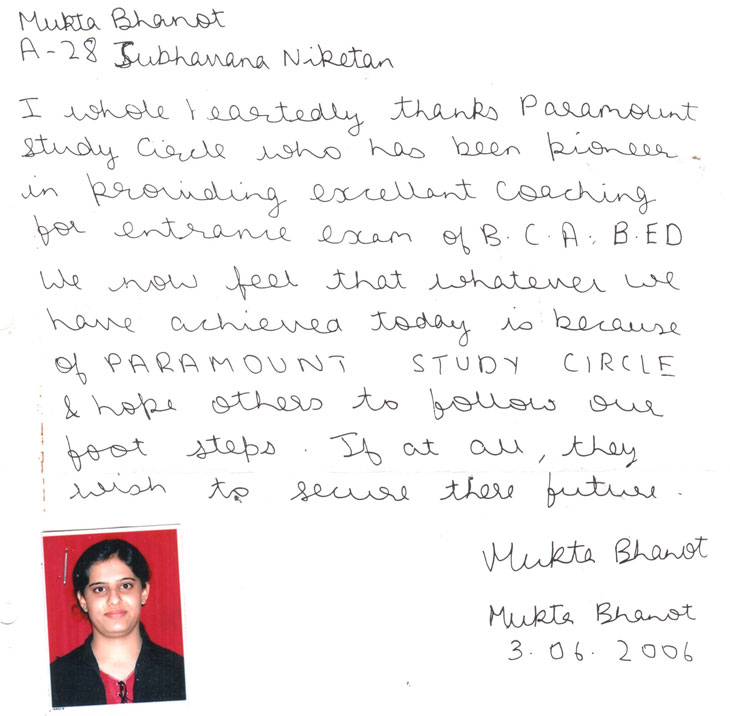 Mukta Bhanot
A-28 Subhavana Niketan
I whole heartedly thanks Paramount
Study Circle who has been pioneer
in providing excellant Coaching
for entrance exam of B.C.A. B.ED
We now feel that whatever we
have achieved today is because
of PARAMOUNT STUDY CIRCLE
& hope others to follow our
foot steps. If at all, they
wish to secure there future.
Mukta Bhanot
Mukta Bhanot
3.06.2006